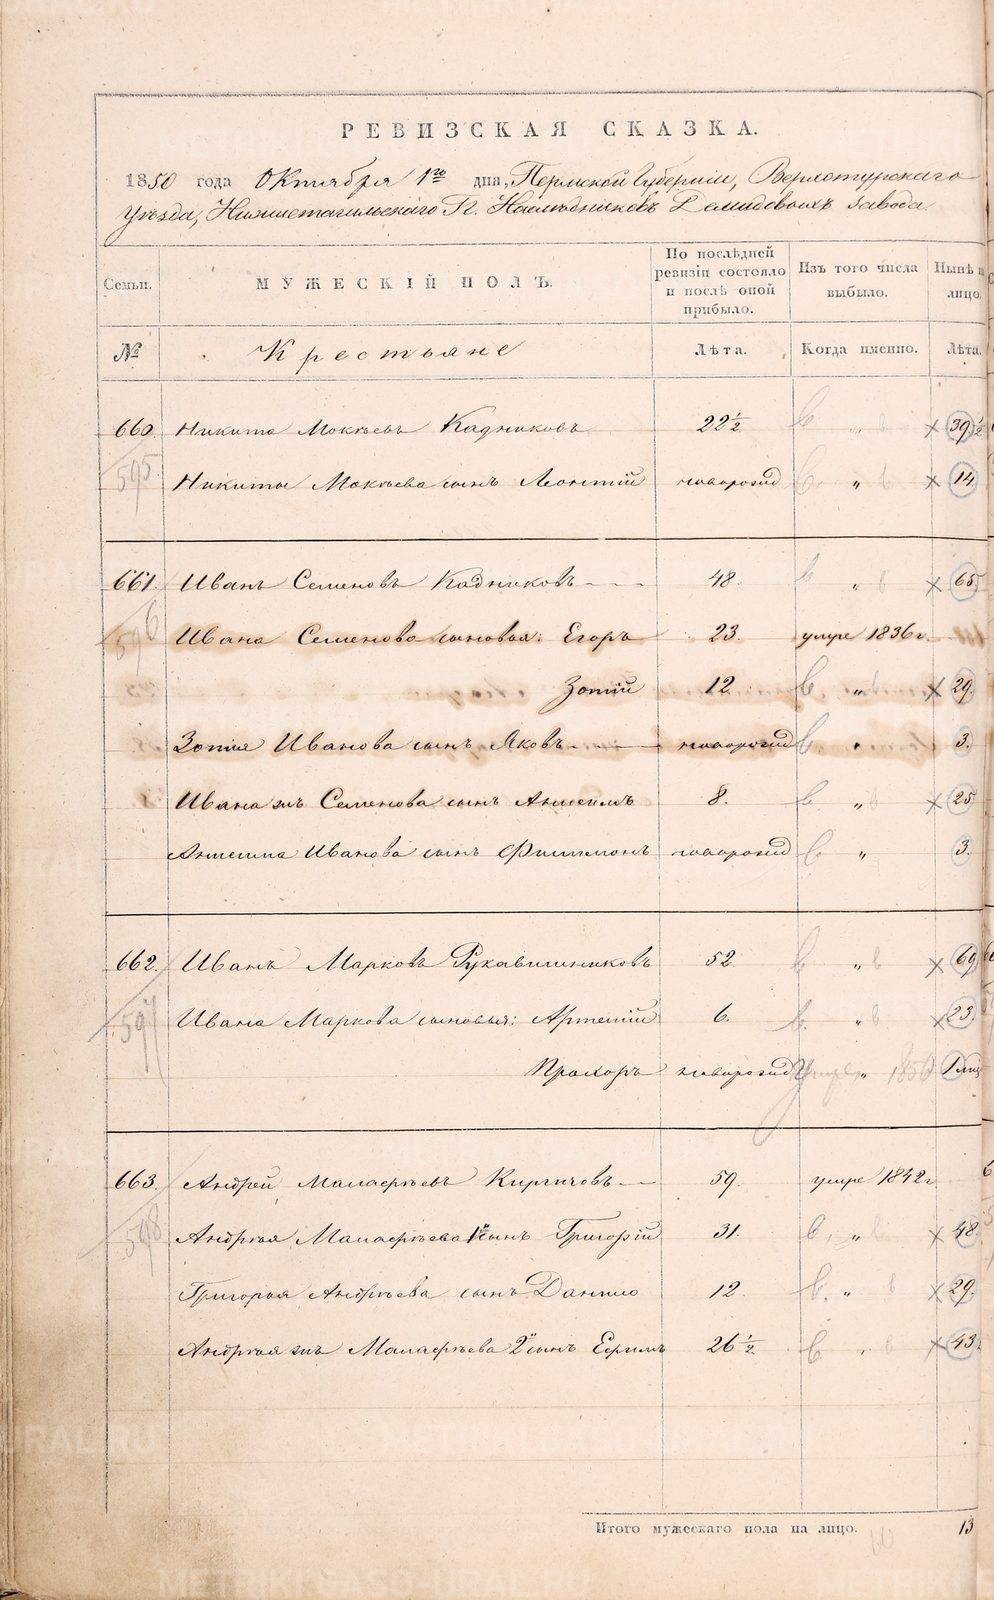 РЕВИЗСКАЯ СКАЗКА.
1850 года Октября 1го дня, Пермской Губернии, Верхотурскаго
уезда, Нижнетагильскаго Гг. Наследниковъ Демидовыхъ завода
Семьи. МУЖЕСКІЙ ПОЛЪ. По послѣдней ревизіи состояло и послѣ оной прибыло. Изъ того числа выбыло. Нынѣ на лицо.
№ Крестьяне Лѣта. Когда именно. Лѣта.
660 Никита Мокѣевъ Кадниковъ 22 1/2 „ 39 1/2
595 Никиты Мокѣева сынъ Леонтій новорожд „ 14
661. Иванъ Семеновъ Кадниковъ 48. „ 65
596 Ивана Семенова сыновья: Егоръ 23. умре 1836г.
Зотій 12. „ 29.
Зотія Иванова сынъ Яковъ новорожд „ 3.
Ивана жъ Семенова сынъ Антипъ 8. „ 25
Антипа Иванова сынъ Филимонъ новорожд „ 3.
662. Иванъ Марковъ Рукавишниковъ 52 „ 69
597 Ивана Маркова сыновья: Артемій 6. „ 23.
Прохоръ новорожд умре „ 1850 1
663. Андрей Малафѣевъ Киргичовъ 59. умре 1842г
598 Андрѣя Малафѣева 1й сынъ Григорій 31. „ 48.
Григорья Андрѣева сынъ Данило 12. „ 29.
Андрѣя жъ Малафѣева 2й сынъ Ефимъ 26 1/2 „ 43.
Итого мужескаго пола на лицо. 13
10
METRIKI.GASO-URAL.RU